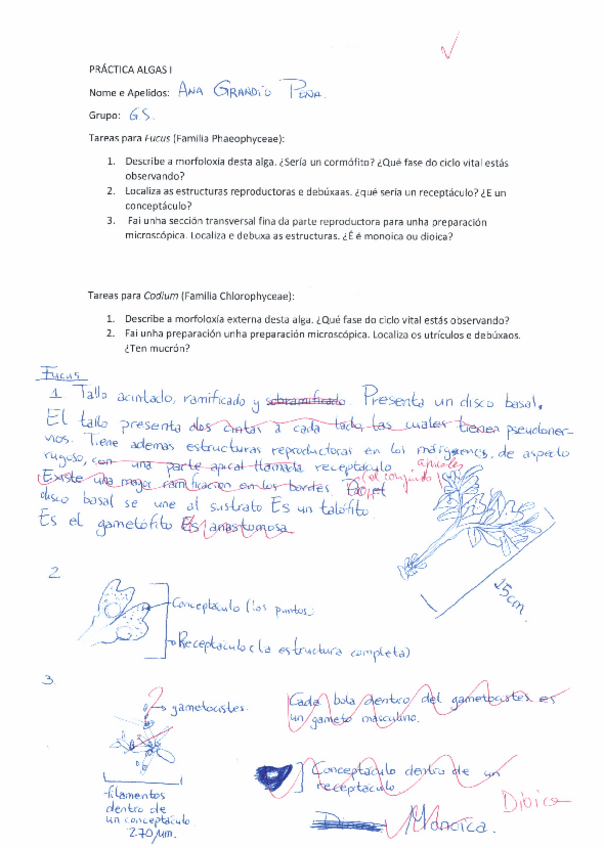 PRÁCTICA ALGAS I
Nome e Apelidos: ANA GRANDÍO PENA.
Grupo: G5.
Tareas para Fucus (Familia Phaeophyceae):
1. Describe a morfoloxía desta alga. ¿Sería un cormófito? ¿Qué fase do ciclo vital estás
observando?
2. Localiza as estructuras reproductoras e debúxaas. ¿qué sería un receptáculo? ¿E un
conceptáculo?
3. Fai unha sección transversal fina da parte reproductora para unha preparación
microscópica. Localiza e debuxa as estructuras. ¿É é monoica ou dioica?
Tareas para Codium (Familia Chlorophyceae):
1. Describe a morfoloxía externa desta alga. ¿Qué fase do ciclo vital estás observando?
2. Fai unha preparación unha preparación microscópica. Localiza os utrículos e debúxaos.
¿Ten mucrón?
Fucus
1 Tallo acintado, ramificado y sobramificado. Presenta un disco basal.
El tallo presenta dos cintas a cada lado, las cuales tienen pseudoner-
vios. Tiene ademas estructuras reproductoras en los márgenes, de aspecto
rugoso, con una parte apical llamada receptáculo. apicales
Existe una mayor ramificación en los bordes. (al conjunto) el
disco basal se une al sustrato Es un talófito.
Es el gametófito Es anastomosa.
15cm
2
Conceptáculo (los puntos)
Receptáculo (la estructura completa)
3
gametocistes.
Cada bola dentro del gametocistes es
un gameto masculino.
Conceptáculo dentro de un
receptáculo
-filamentos
dentro de
un conceptáculo
270 µm.
Dioica
Dioica Monoica.